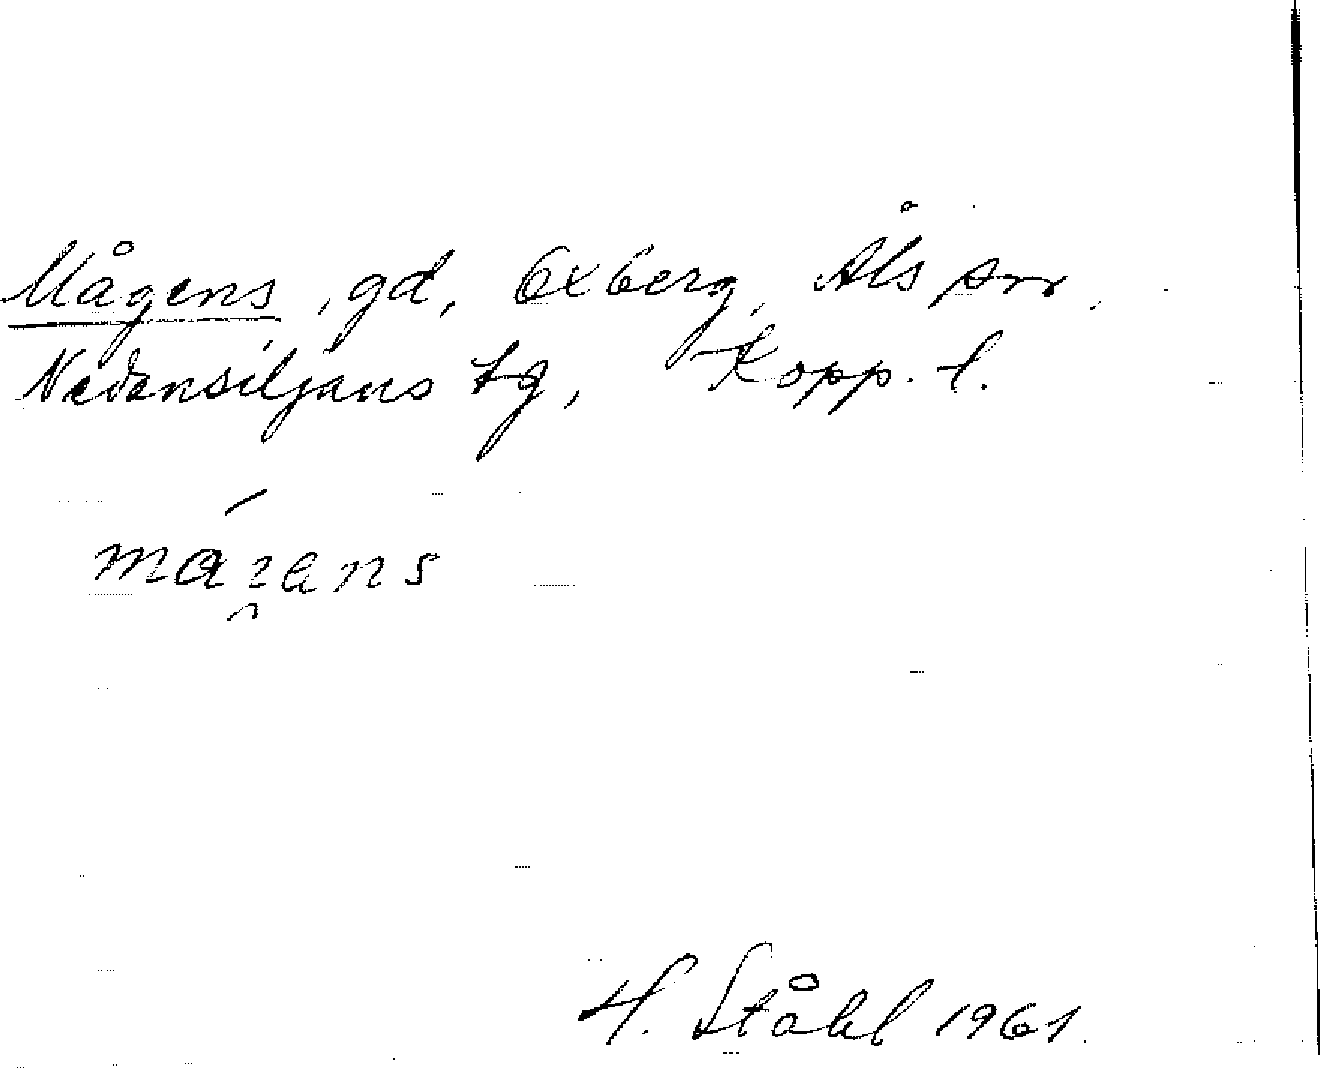 Mågens, gd, Oxberg, Åls sn,
Nedansiljans tg, Kopp. l.
H. Ståhl 1961.